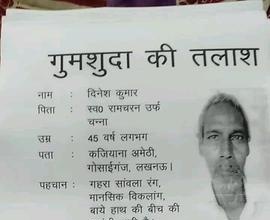 गुमशुदा की तलाश
नाम : दिनेश कुमार
पिता : स्व0 रामचरन उर्फ
चन्ना
उम्र : 45 वर्ष लगभग
पता : कजियाना अमेठी,
गोसाईगंज, लखनऊ।
पहचान : गहरा सांवला रंग,
मानसिक विकलांग,
बाये हाथ की बीच की